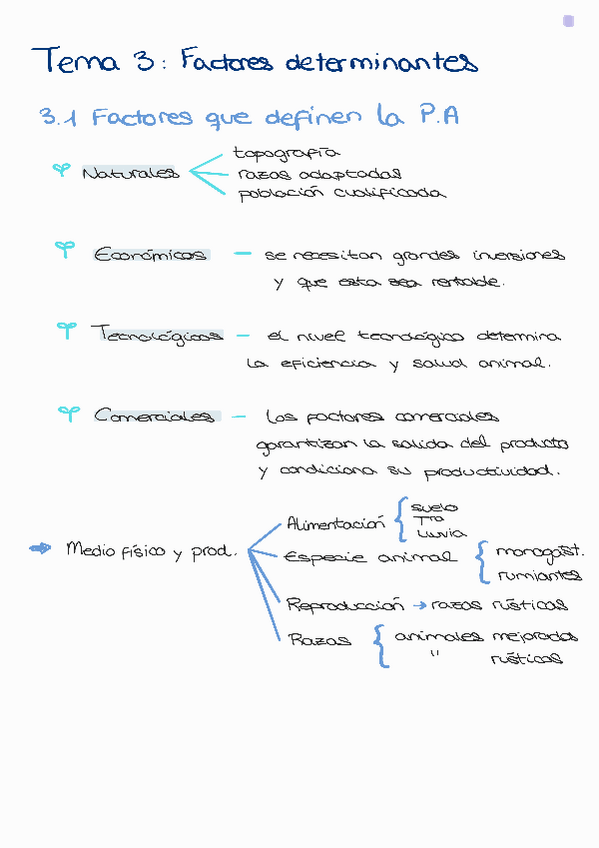 Tema 3: Factores determinantes
3.1 Factores que definen la P.A
Naturales
topografía
razas adaptadas
población cualificada
Económicos — se necesitan grandes inversiones
y que esta sea rentable.
Tecnológicos — el nivel tecnológico determina
la eficiencia y salud animal.
Comerciales — los factores comerciales
garantizan la salida del producto
y condiciona su productividad.
→ Medio físico y prod.
Alimentación { suelo
Tra
lluvia
Especie animal { monogást.
rumiantes
Reproducción → razas rústicas
Razas { animales mejorados
" rústicas